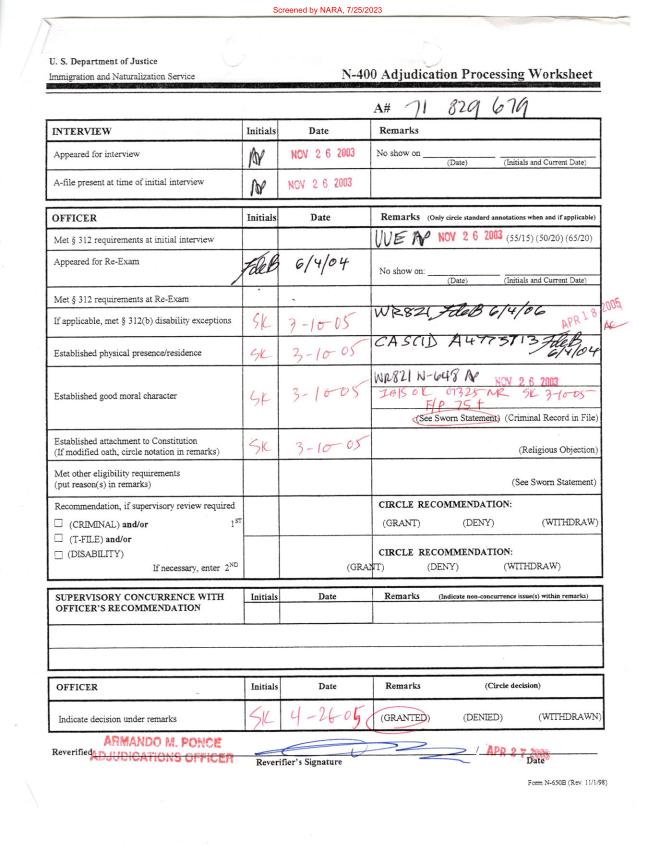 Screened by NARA, 7/25/2023
U. S. Department of Justice
Immigration and Naturalization Service
N-400 Adjudication Processing Worksheet
A# 71 829 679
INTERVIEW Initials Date Remarks
Appeared for interview AP NOV 26 2003 No show on
(Date) (Initials and Current Date)
A-file present at time of initial interview AP NOV 26 2003
OFFICER Initials Date Remarks (Only circle standard annotations when and if applicable)
Met § 312 requirements at initial interview UUE AP NOV 26 2003 (55/15) (50/20) (65/20)
Appeared for Re-Exam FdeB 6/4/04 No show on:
(Date) (Initials and Current Date)
Met § 312 requirements at Re-Exam
WR821 FdeB 6/4/06 APR 18 2005
If applicable, met § 312(b) disability exceptions SK 3-10-05 AC
CASCID A4773713 FdeB
Established physical presence/residence SK 3-10-05 6/4/04
WR821 N-648 AP NOV 26 2003
Established good moral character SK 3-10-05 IBIS OK 01325 NR SK 3-10-05
F/P 75+
(See Sworn Statement) (Criminal Record in File)
Established attachment to Constitution SK 3-10-05
(If modified oath, circle notation in remarks) (Religious Objection)
Met other eligibility requirements
(put reason(s) in remarks) (See Sworn Statement)
Recommendation, if supervisory review required CIRCLE RECOMMENDATION:
(CRIMINAL) and/or 1ST (GRANT) (DENY) (WITHDRAW)
(T-FILE) and/or
(DISABILITY) CIRCLE RECOMMENDATION:
If necessary, enter 2ND (GRANT) (DENY) (WITHDRAW)
SUPERVISORY CONCURRENCE WITH Initials Date Remarks (Indicate non-concurrence issue(s) within remarks)
OFFICER'S RECOMMENDATION
OFFICER Initials Date Remarks (Circle decision)
Indicate decision under remarks SK 4-26-05 (GRANTED) (DENIED) (WITHDRAWN)
ARMANDO M. PONCE
Reverified ADJUDICATIONS OFFICER / APR 27 2005
Reverifier's Signature Date
Form N-650B (Rev. 11/1/98)